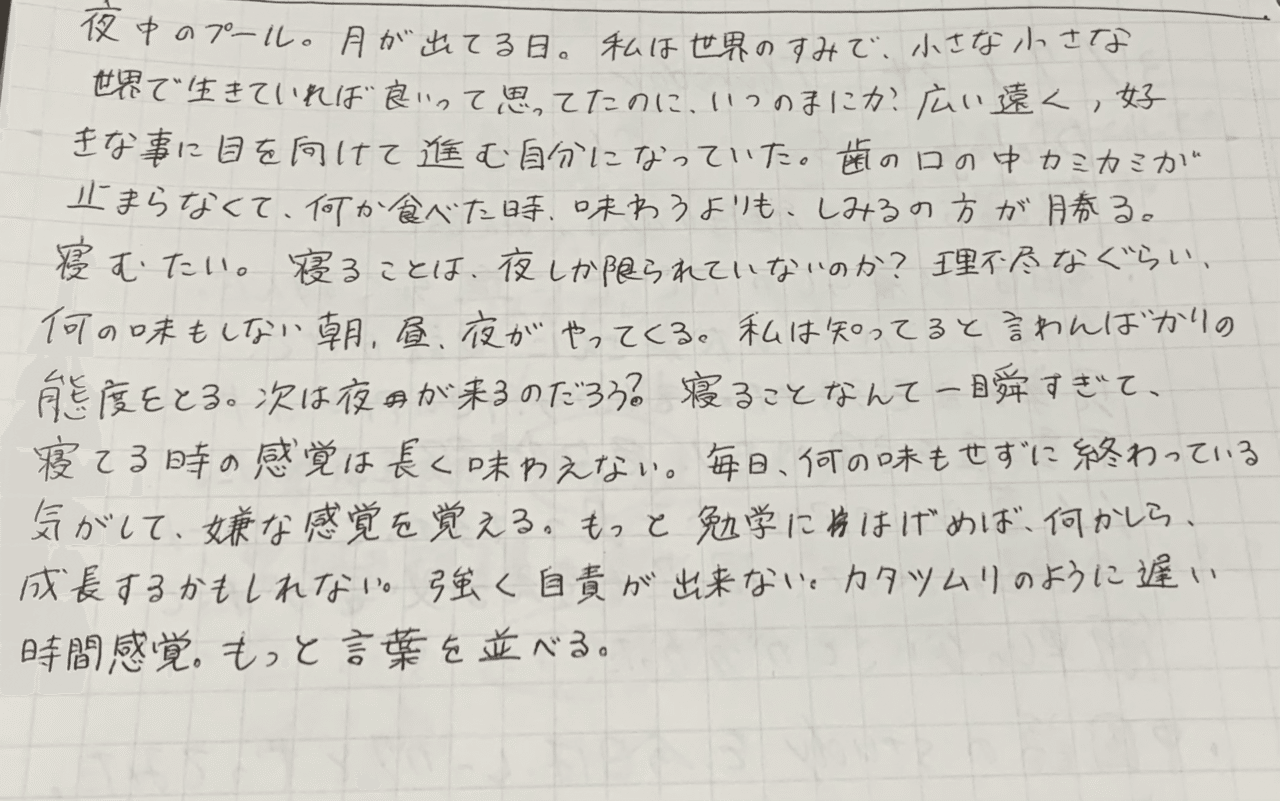 夜中のプール。月が出てる日。私は世界のすみで、小さな小さな
世界で生きていれば良いって思ってたのに、いつのまにか広い遠く、好
きな事に目を向けて進む自分になっていた。歯の口の中カミカミが
止まらなくて、何か食べた時、味わうよりも、しみるの方が勝る。
寝むたい。寝ることは、夜しか限られていないのか?理不尽なぐらい、
何の味もしない朝、昼、夜がやってくる。私は知ってると言わんばかりの
態度をとる。次は夜が来るのだろう?寝ることなんて一瞬すぎて、
寝てる時の感覚は長く味わえない。毎日、何の味もせずに終わっている
気がして、嫌な感覚を覚える。もっと勉学にはげめば、何かしら、
成長するかもしれない。強く自責が出来ない。カタツムリのように遅い
時間感覚。もっと言葉を並べる。